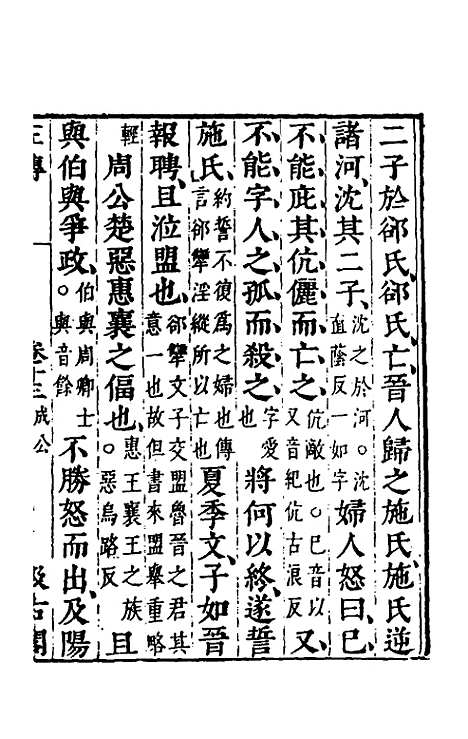 二子於郤氏、郤氏亡、晉人歸之施氏、施氏逆
諸河、沈其二子、沈之於河○沈直蔭反一如字婦人怒曰、已
不能庇其伉儷而亡之、伉敵也○已音以又音紀伉古浪反又
不能字人之孤而殺之、字愛也將何以終、遂誓
施氏、約誓不復爲之婦也傳言郤犨淫縱所以亡也夏季文子如晉
報聘、且涖盟也、郤犨文子交盟魯晉之君其意一也故但書來盟舉重略
輕周公楚惡惠襄之偪也。惠王襄王之族惡烏路反且
與伯與爭政、伯與周卿士○與音餘不勝怒而出、及陽
卷十三成公